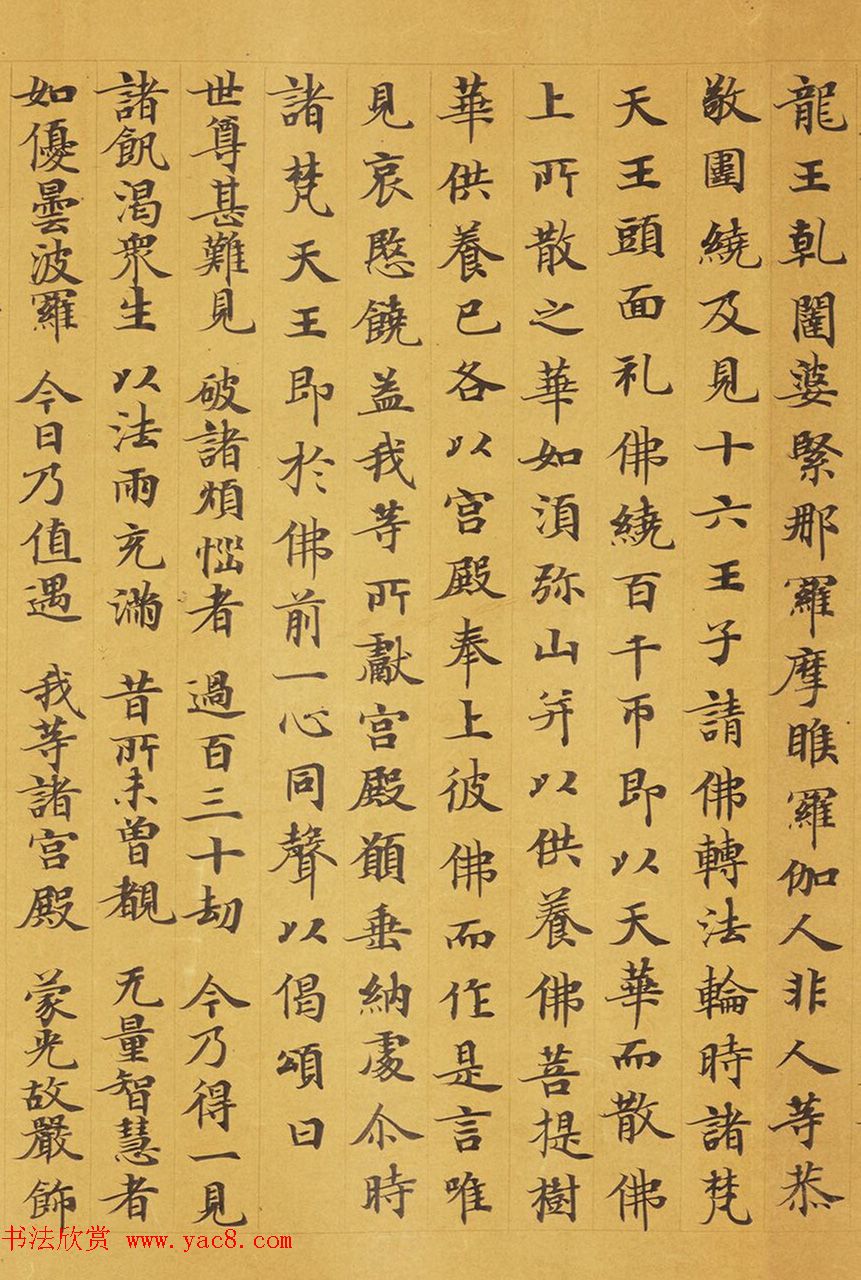 龍王乹闥婆緊那羅摩睺羅伽人非人等恭
敬圍繞及見十六王子請佛轉法輪時諸梵
天王頭面礼佛繞百千帀即以天華而散佛
上所散之華如湏弥山并以供養佛菩提樹
華供養已各以宫殿奉上彼佛而作是言唯
見哀愍饒益我等所獻宫殿願垂納處尒時
諸梵天王即於佛前一心同聲以偈頌曰
世尊甚難見 破諸煩惱者 過百三十劫 今乃得一見
諸飢渴衆生 以法雨充滿 昔所未曾覩 无量智慧者
如優曇波羅 今日乃值遇 我等諸宫殿 蒙光故嚴飾
书法欣赏 www.yac8.com